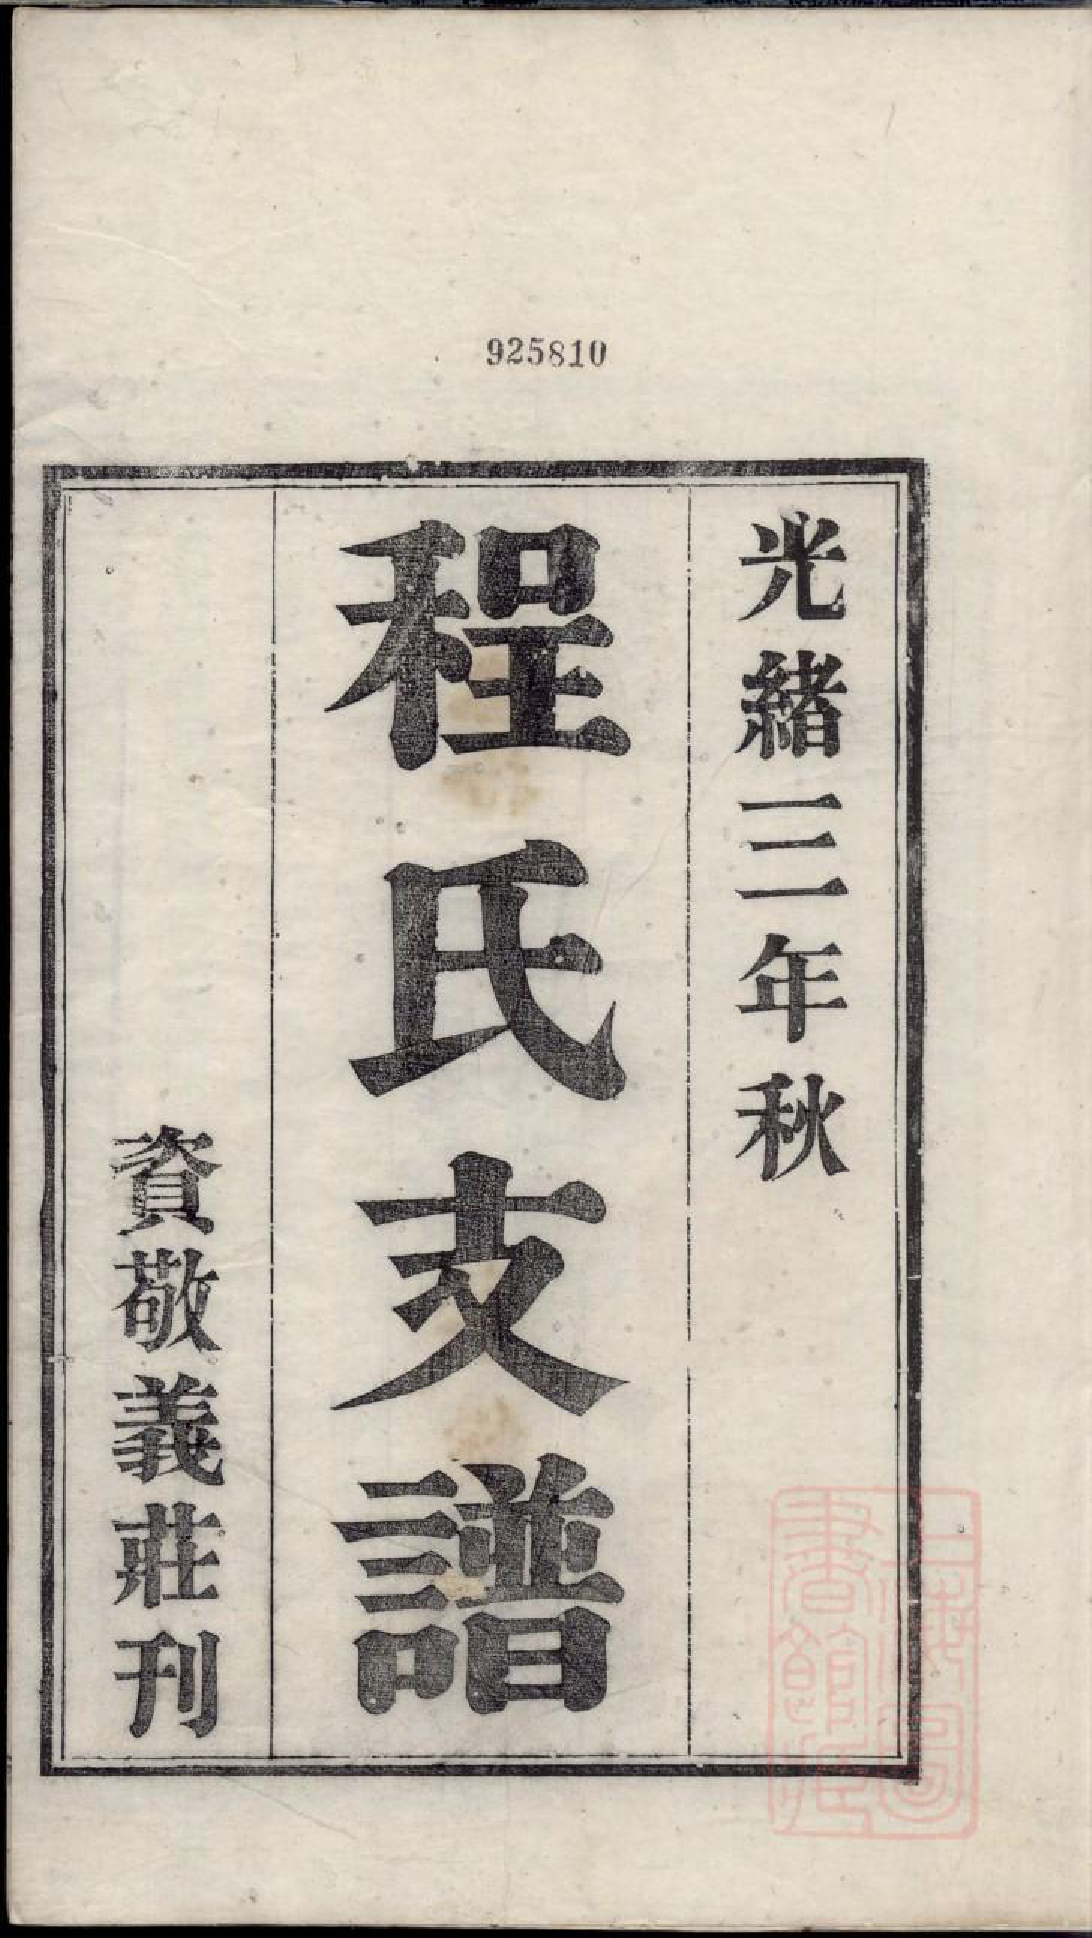 925810
光緒三年秋
程氏支譜
資敬義莊刊
上海圖
書館藏